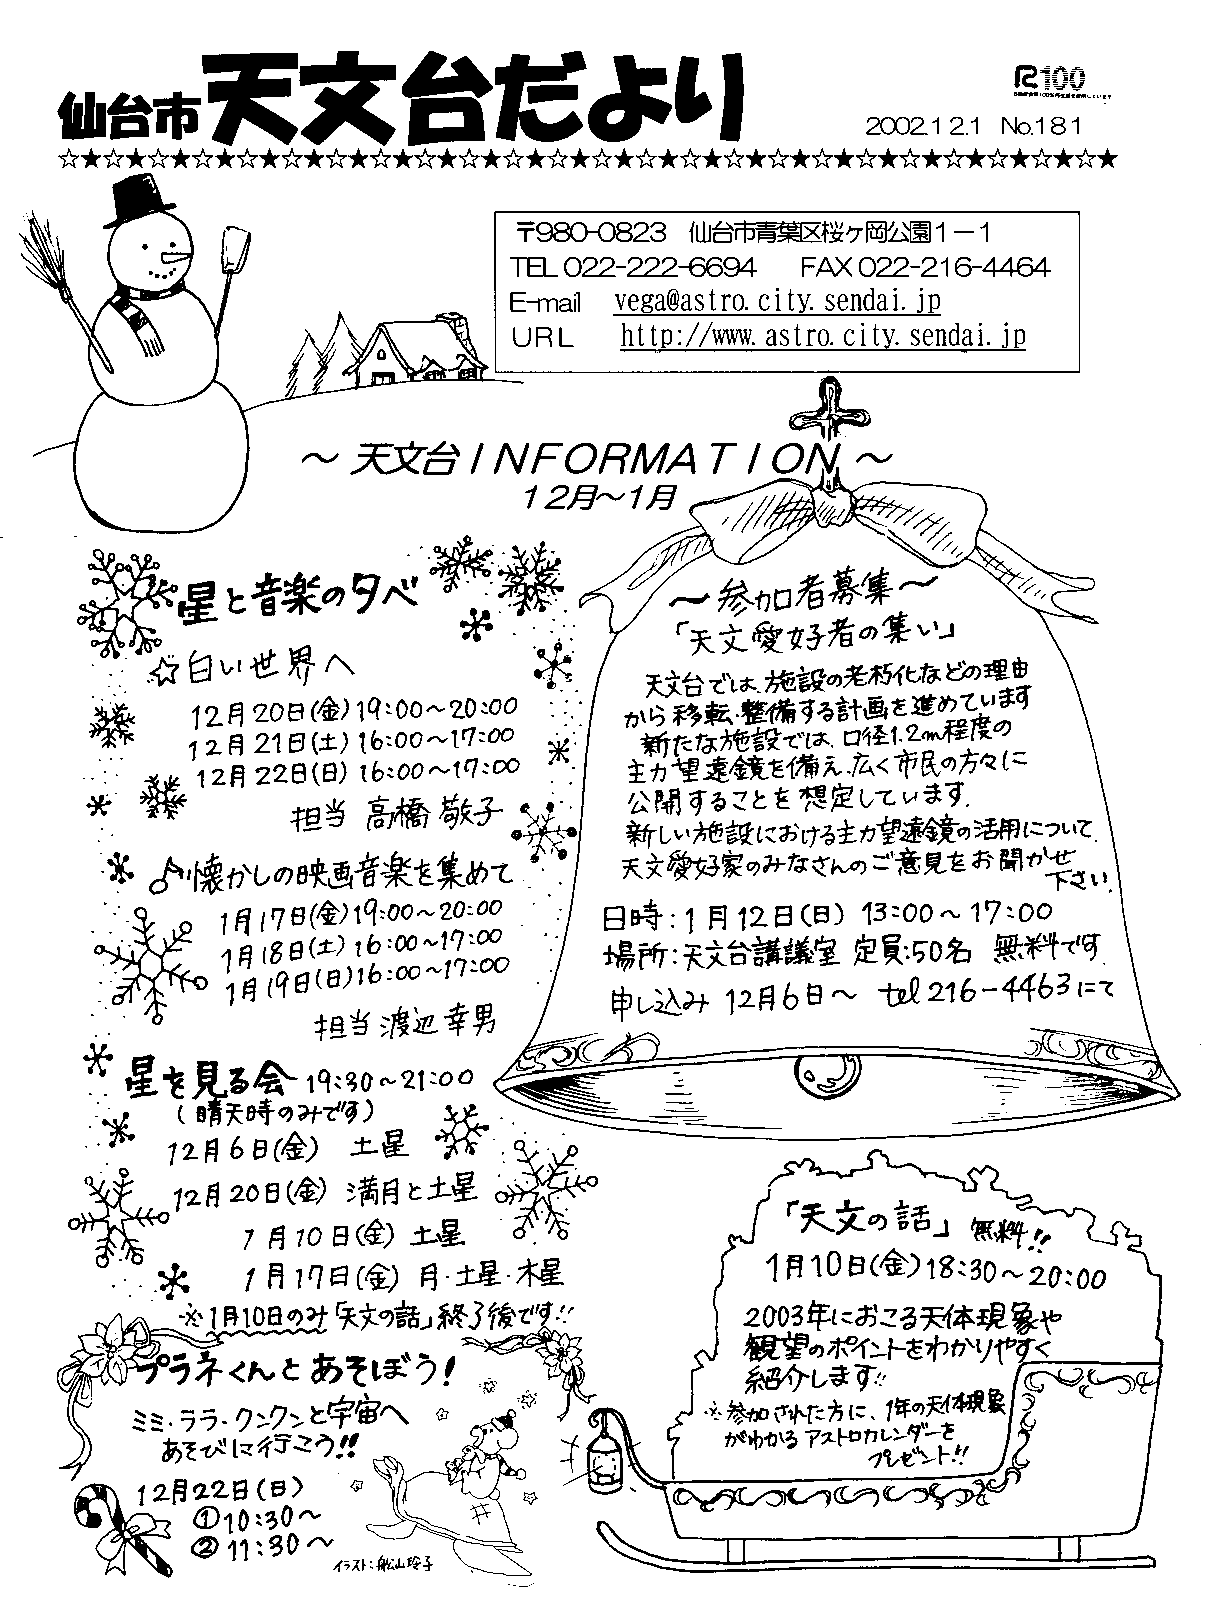 仙台市 天文台だより
R100
2002.12.1 No.181
〒980-0823 仙台市青葉区桜ヶ岡公園1－1
TEL 022-222-6694 FAX 022-216-4464
E-mail vega@astro.city.sendai.jp
URL http://www.astro.city.sendai.jp
～天文台INFORMATION～
12月～1月
星と音楽の夕べ
☆白い世界へ
12月20日(金)19:00～20:00
12月21日(土)16:00～17:00
12月22日(日)16:00～17:00
担当 高橋 敬子
♪懐かしの映画音楽を集めて
1月17日(金)19:00～20:00
1月18日(土)16:00～17:00
1月19日(日)16:00～17:00
担当 渡辺 幸男
星を見る会 19:30～21:00
(晴天時のみです)
12月6日(金) 土星
12月20日(金) 満月と土星
1月10日(金) 土星
1月17日(金) 月・土星・木星
※1月10日のみ「天文の話」終了後です!!
プラネくんとあそぼう!
ミミ・ララ・クンクンと宇宙へ
あそびに行こう!!
12月22日(日)
①10:30～
②11:30～
イラスト:舩山玲子
～参加者募集～
「天文愛好者の集い」
天文台では、施設の老朽化などの理由
から移転・整備する計画を進めています
新たな施設では、口径1.2m程度の
主力望遠鏡を備え、広く市民の方々に
公開することを想定しています.
新しい施設における主力望遠鏡の活用について、
天文愛好家のみなさんのご意見をお聞かせ
下さい.
日時:1月12日(日) 13:00～17:00
場所:天文台講議室 定員:50名 無料です.
申し込み 12月6日～ tel 216-4463にて
「天文の話」 無料!!
1月10日(金)18:30～20:00
2003年におこる天体現象や
観望のポイントをわかりやすく
紹介します!!
※参加された方に、1年の天体現象
がわかるアストロカレンダーを
プレゼント!!